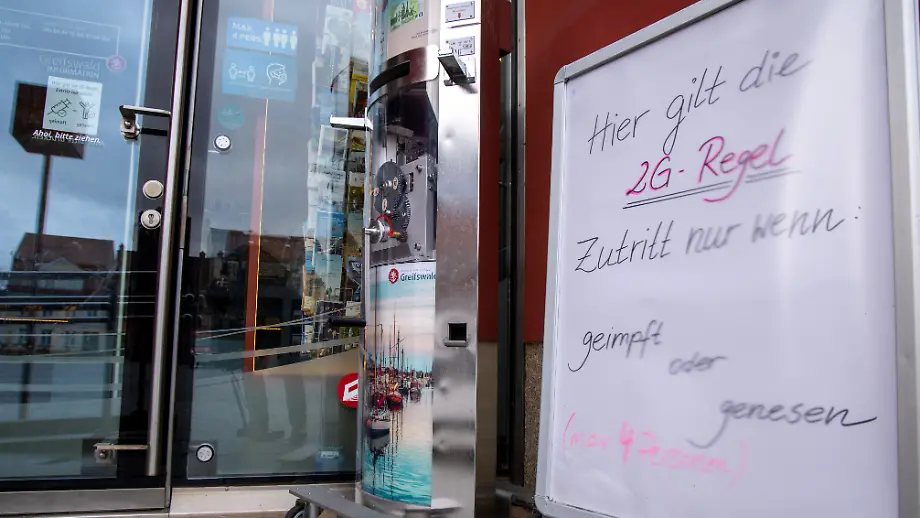 MAX.
4 PERS.
Greifswald
INFORMATION
geimpft
genesen
Ahoi, bitte ziehen.
Greifswald
Hier gilt die
2G-Regel
Zutritt nur wenn:
geimpft
oder
genesen
(max 4 Personen)